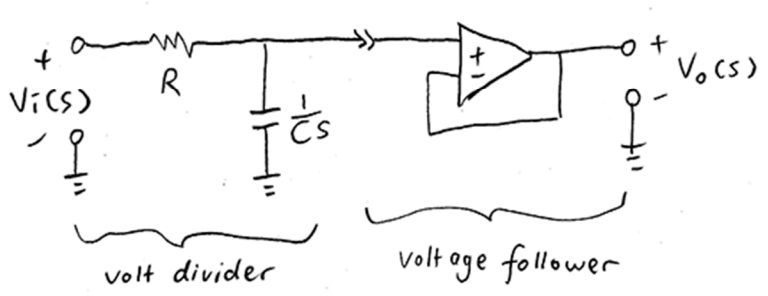 +
Vi(s)
-
R
1/Cs
+
-
+
Vo(s)
-
volt divider
voltage follower